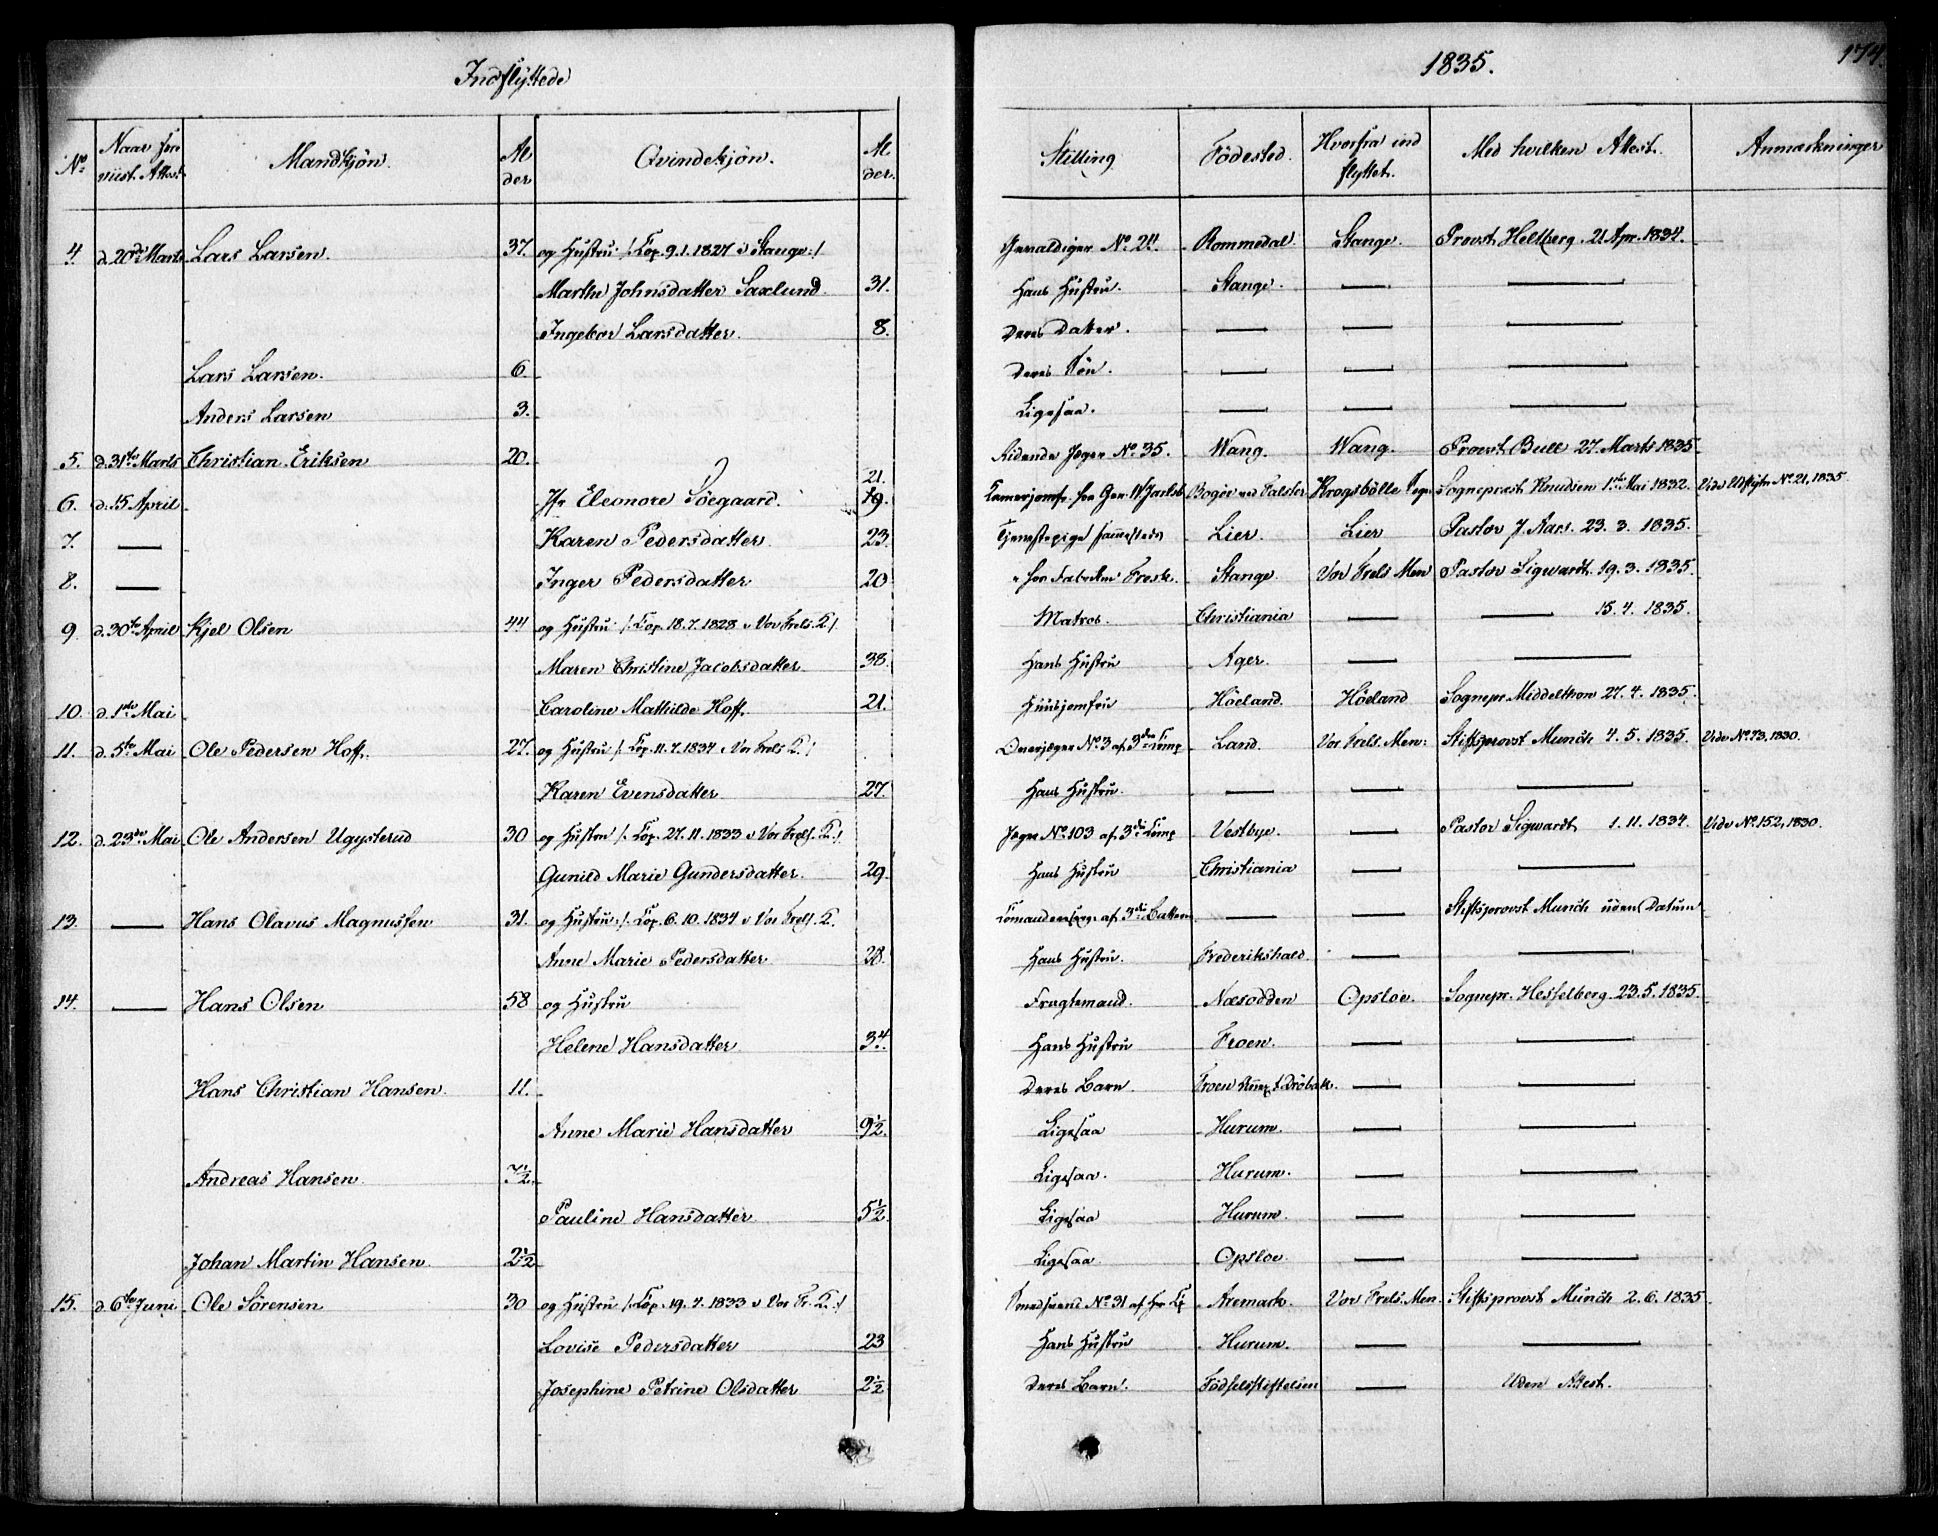 Indflyttede
1835.
174.
No | Naar fore viist Attest. | Mandkjøn. | Al der | Qvindekjøn. | Al der. | Stilling | Fødested. | Hvorfra ind flyttet. | Med hvilken Attest. | Anmærkninger
4 | d. 20de Marts | Lars Larsen. | 37. | og Hustru /: Cop. 9.1.1827 i Stange :/ | | No 24. | Rommedal. | Stange. | Provst Heltberg. 21 Apr. 1834.
Marthe Johnsdatter Saxlund. | 31. | Hans Hustru. | Stange. | — | —
Ingebor Larsdatter. | 8. | Deres Datter. | — | — | —
Lars Larsen. | 6. | Deres Søn. | — | — | —
Anders Larsen | 3. | Ligesaa. | — | — | —
5. | d. 31te Marts | Christian Eriksen | 20. | Ridende Jæger No 35. | Wang. | Wang. | Provst Bull 27. Marts 1835.
21.
6. | d. 15 April | Jfr Eleonore Söegaard. | 19. | Falster | Krogsbölle | Sognepræst Knudsen 1ste Mai 1832. | Vide No 21, 1835.
7. | — | Karen Pedersdatter. | 23. | Tjenestepige sammesteds | Lier. | Lier | Pastor J. Aars. 23. 3. 1835.
8. | — | Inger Pedersdatter | 20 | Stange. | Vor Frels. Men | Pastor Sigwardt. 19. 3. 1835.
9. | d. 30te April | Kjel Olsen | 44 | og Hustru /: Cop. 18. 7. 1828 i Vor Frels. K. :/ | Matros. | Christiania | — | — 15. 4. 1835.
Maren Christine Jacobsdatter | 38. | Hans Hustru | Ager. | — | —
10. | d. 1ste Mai | Caroline Mathilde Hoff. | 21. | Huusjomfru | Höeland. | Höeland | Sognepr. Middelthon 27. 4. 1835.
11. | d. 5te Mai | Ole Pedersen Hoff. | 27. | og Hustru /: Cop. 11. 7. 1834 i Vor Frels K. :/ | Overjæger No 3 af 3die Comp | Land. | Vor Frels. Men: | Stiftsprovst Munch 4. 5. 1835. | Vide No 73, 1830.
Karen Evensdatter. | 27. | Hans Hustru. | — | — | —
12. | d. 23de Mai | Ole Andersen Ugysterud | 30 | og Hustru /: Cop. 27. 11. 1833 i Vor Frels. K. :/ | Jæger No 103 af 3die Comp | Vestbye. | — | Pastor Sigwardt 1. 11. 1834. | Vide No 152, 1830.
Gunild Marie Gundersdatter. | 29. | Hans Hustru | Christiania | — | —
13. | — | Hans Olavus Magnussen | 31. | og Hustru /: Cop. 6. 10. 1834 i Vor Frels. K. | — | — | Stiftsprovst Munch uden Datum
Anne Marie Pedersdatter | 28. | Hans Hustru. | Frederikshald | — | —
14. | — | Hans Olsen | 58 | og Hustru | Fragtemand. | Næsodden | Opsloe. | Sognepr. Hesselberg. 23. 5. 1835.
Helene Hansdatter | 34. | Hans Hustru | Froen. | — | —
Hans Christian Hansen. | 11. | Deres Barn. | Froen Dröbak. | — | —
Anne Marie Hansdatter | 9½. | Ligesaa | Hurum. | — | —
Andreas Hansen. | 7½. | Ligesaa. | Hurum. | — | —
Pauline Hansdatter | 5½. | Ligesaa | Hurum. | — | —
Johan Martin Hansen. | 2½ | Ligesaa | Opsloe. | — | —
15. | d. 6te Juni | Ole Sörensen | 30 | og Hustru /: Cop. 19. 7. 1833 i Vor Fr. K. :/ | No 31 | Aremark. | Vor Frels. Men. | Stiftsprovst Munch 2. 6. 1835
Lovise Pedersdatter | 23 | Hans Hustru | Hurum. | — | —
Josephine Petrine Olsdatter | 2½ | Deres Barn. | Födselsstiftelsen | — | Uden Attest.